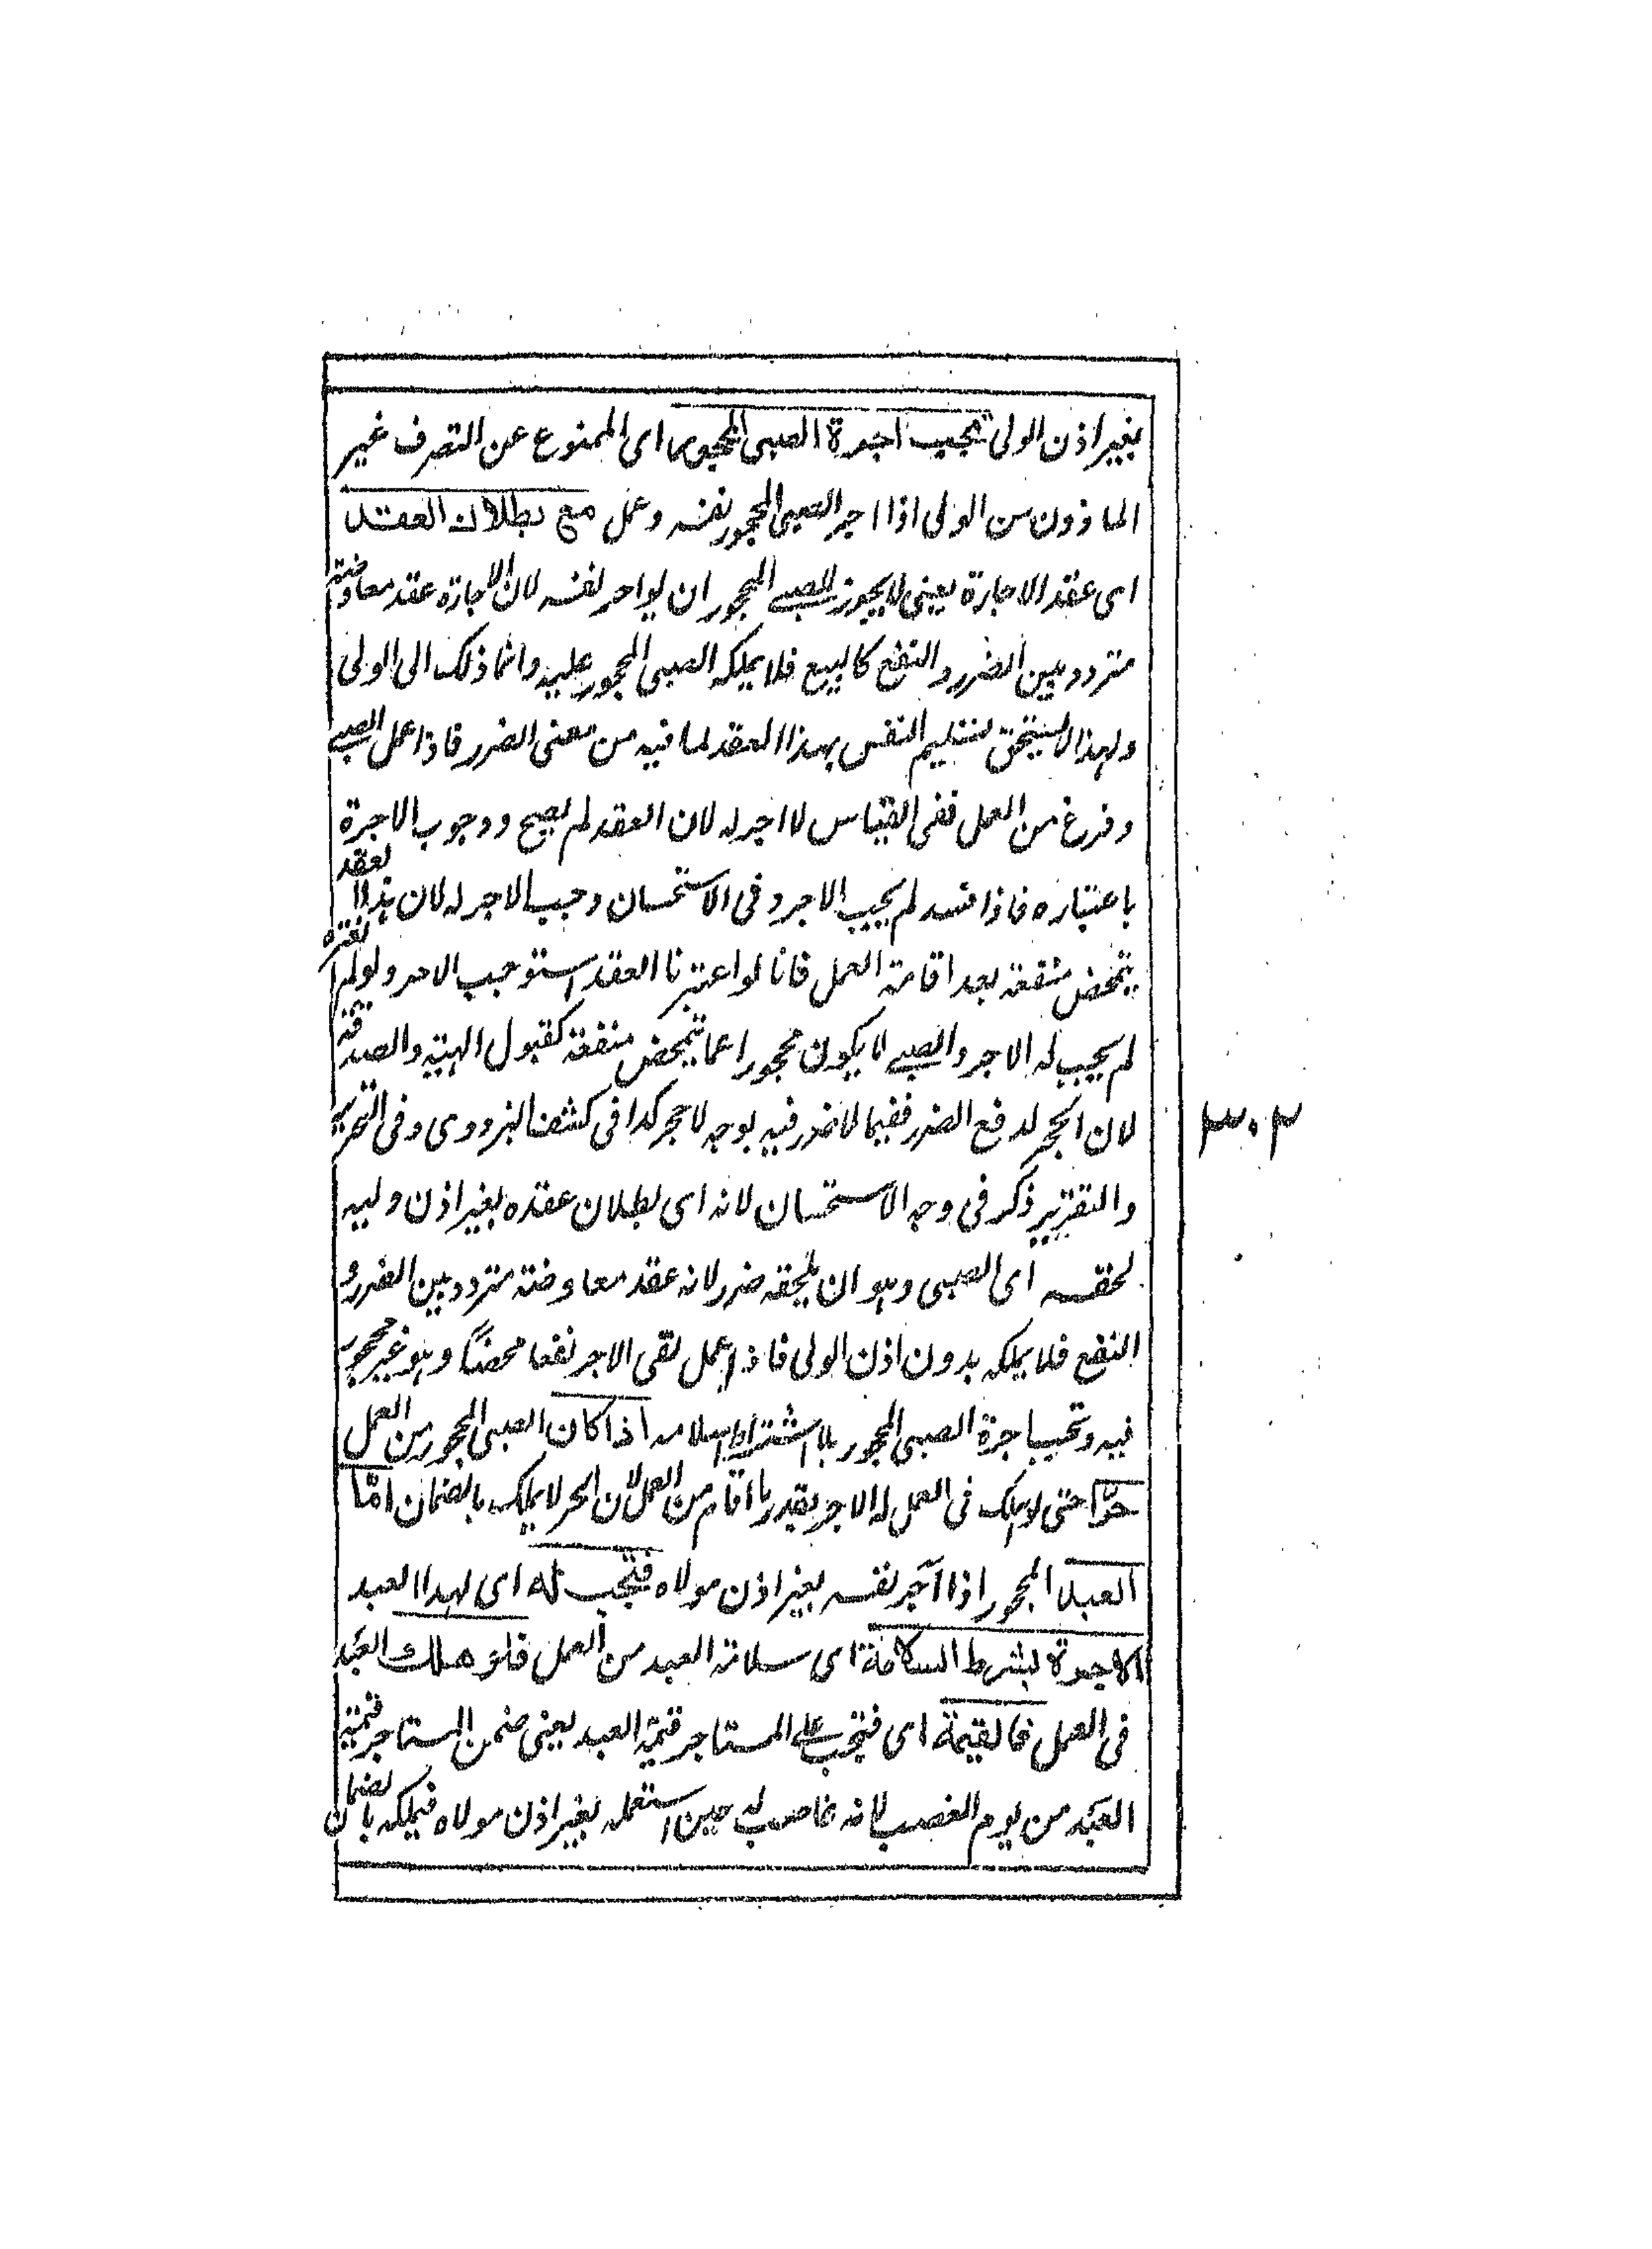 بغير اذن الولى تجب اجرة الصبى المحجور اى الممنوع عن التصرف غير
الماذون من الولى اذا اجر الصبى المحجور نفسه وعمل مع بطلان العقد
اى عقد الاجارة يعنى لا يجوز للصبى المحجور ان يواجر نفسه لان الاجازة عقد معاوضة
متردد بين الضرر والنفع كالبيع فلا يملكه الصبى المحجور عليه وانما ذلك الى الولى
ولهذا لا يستحق تسليم النفس بهذا العقد لما فيه من معنى الضرر فاذا عمل الصبى
وفرغ من العمل ففى القياس لا اجر له لان العقد لم يصح ووجوب الاجرة
باعتباره فاذا فسد لم يجب الاجر وفى الاستحسان وجب الاجر له لان هذا العقد
يتمحض منفعة بعد اقامة العمل فانا لو اعتبرنا العقد استوجب الاجر ولو لم نعتبره
لم يجب له الاجر والصبى لا يكون محجورا عما يتمحض منفعة كقبول الهبة والصدقة
لان الحجر لدفع الضرر ففيما لا ضرر فيه بوجه لا حجر كذا فى كشف البزدوى وفى التحرير
والتقرير ذكر فى وجه الاستحسان لانه اى بطلان عقده بغير اذن وليه
لحقه اى الصبى وهو ان يلحقه ضرر لانه عقد معاوضة متردد بين الضرر و
النفع فلا يملكه بدون اذن الولى فاذا عمل بقى الاجر نفعا محضاً وهو غير محجور
فيه وتجب اجرة الصبى المحجور بلا اشتراط سلامه اذا كان الصبى المحجور من العمل
حرّا حتى لو هلك فى العمل له الاجر بقدر ما اقام من العمل لان الحر لا يملك بالضمان امّا
العبد المحجور اذا آجر نفسه بغير اذن مولاه فتجب له اى لهذا العبد
الاجرة بشرط السلامة اى سلامة العبد من العمل فلو هلك العبد
فى العمل فالقيمة اى فتجب على المستاجر قيمة العبد يعنى ضمن المستاجر قيمة
العبد من يوم الغصب لانه غاصب له حين استعمله بغير اذن مولاه فيملكه بالضمان
٣٠٣